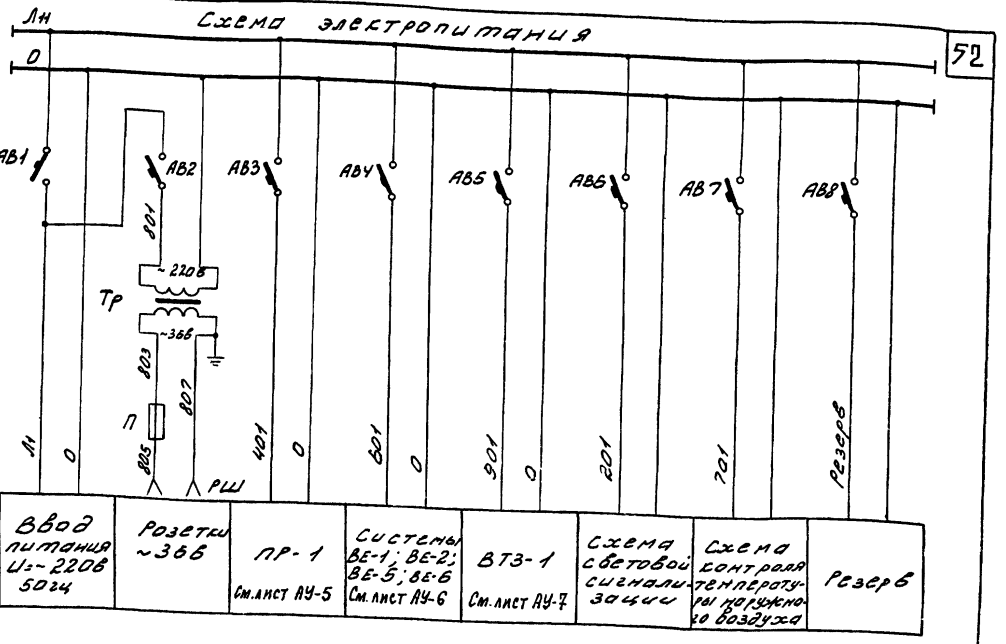 Схема электропитания
52
Лн
0
АВ1
АВ2
АВ3
АВ4
АВ5
АВ6
АВ7
АВ8
801
~220в
Тр
~36в
803
807
П
805
РШ
Л1
0
401
0
601
0
901
0
201
701
Резерв
Ввод
питания
U=~220в
50гц
Розетки
~36в
ПР-1
См.лист АУ-5
Системы
ВЕ-1; ВЕ-2;
ВЕ-5; ВЕ-6
См.лист АУ-6
ВТЗ-1
См.лист АУ-7
Схема
световой
сигнали-
зации
Схема
контроля
температу-
ры наружно-
го воздуха
Резерв